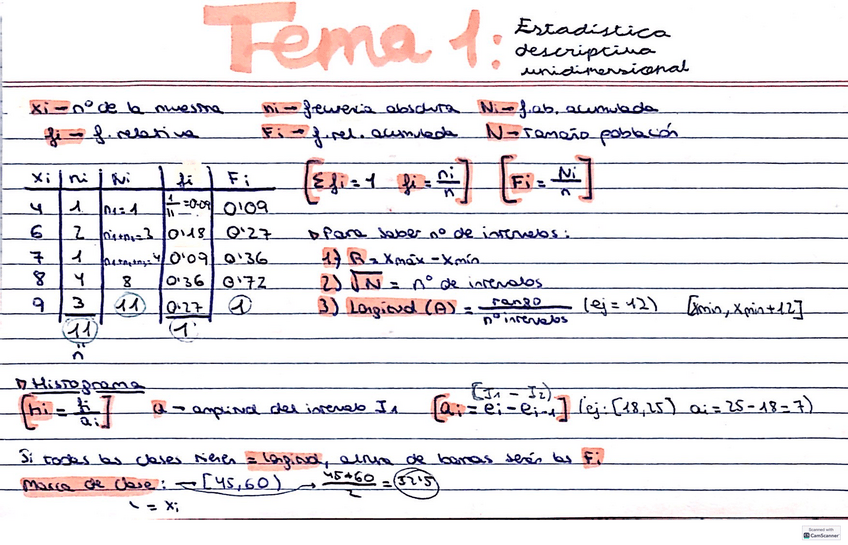 Tema 1: Estadística
descriptiva
unidimensional
xi → nº de la muestra   ni → frecuencia absoluta   Ni → f. ab. acumulada
fi → f. relativa   Fi → f. rel. acumulada   N → Tamaño población
xi | ni | Ni | fi | Fi
4 | 1 | n1 = 1 | 1/11 = 0'09 | 0'09
6 | 2 | n1+n2 = 3 | 0'18 | 0'27
7 | 1 | n1+n2+n3 = 4 | 0'09 | 0'36
8 | 4 | 8 | 0'36 | 0'72
9 | 3 | 11 | 0'27 | 1
11 | 1
n
[Σ fi = 1   fi = ni/n]   [Fi = Ni/n]
▷ Para saber nº de intervalos:
1) R = xmáx - xmín
2) √N = nº de intervalos
3) Longitud (A) = rango/nº intervalos (ej = 12)   [xmin, xmin+12]
▷ Histograma
[hi = fi/ai]   a → amplitud del intervalo I1   [ai = ei - ei-1] (ej: [18,25) ai = 25-18 = 7)
[I1 - I2)
Si todas las clases tienen = longitud, altura de barras serán las Fi
Marca de clase: → [45,60) → 45+60/2 = 52'5
= xi
Scanned with
CamScanner